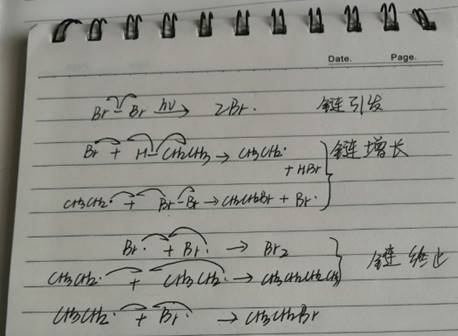 Date. Page.
Br - Br hν→ 2Br· 链引发
Br· + H-CH2CH3 → CH3CH2· 链增长
+ HBr
CH3CH2· + Br-Br → CH3CH2Br + Br·
Br· + Br· → Br2
CH3CH2· + CH3CH2· → CH3CH2CH2CH3 链终止
CH3CH2· + Br· → CH3CH2Br